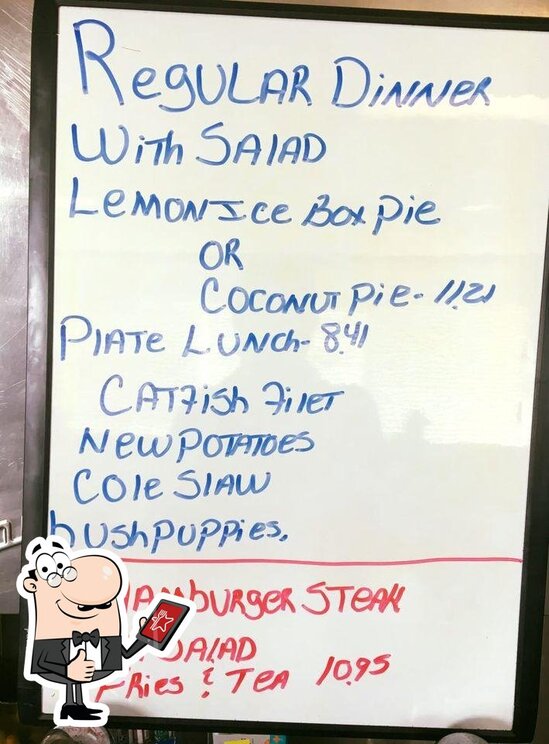 Regular Dinner
With Salad
Lemon Ice Box Pie
OR
Coconut Pie - 11.21
Plate Lunch - 8.41
Catfish Filet
New Potatoes
Cole Slaw
hush puppies.
Hamburger Steak
Salad
Fries & Tea 10.95